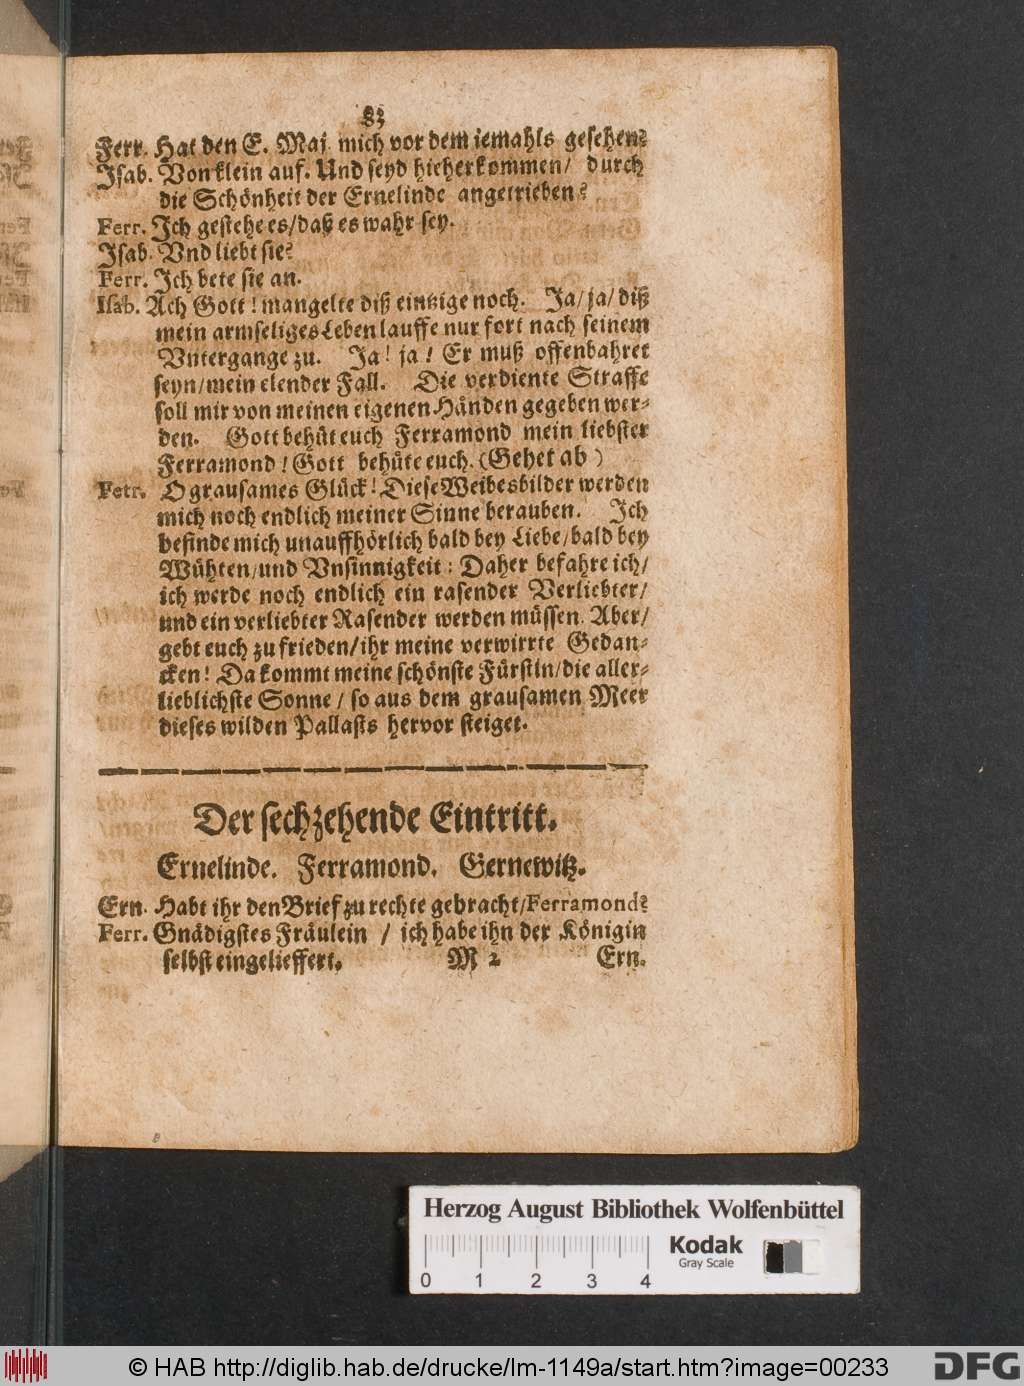 83
Ferr. Hat den E. Maj. mich vor dem iemahls gesehen?
Isab. Von klein auf. Und seyd hieherkommen/ durch
die Schönheit der Ernelinde angetrieben?
Ferr. Ich gestehe es/daß es wahr sey.
Isab. Vnd liebt sie?
Ferr. Ich bete sie an.
Isab. Ach Gott! mangelte diß eintzige noch. Ja/ja/diß
mein armseliges Leben lauffe nur fort nach seinem
Vntergange zu. Ja! ja! Er muß offenbahret
seyn/mein elender Fall. Die verdiente Straffe
soll mir von meinen eigenen Händen gegeben wer-
den. Gott behüt euch Ferramond mein liebster
Ferramond! Gott behüte euch. (Gehet ab)
Ferr. O grausames Glück! Diese Weibesbilder werden
mich noch endlich meiner Sinne berauben. Ich
befinde mich unauffhörlich bald bey Liebe/bald bey
Wühten/und Vnsinnigkeit: Daher befahre ich/
ich werde noch endlich ein rasender Verliebter/
und ein verliebter Rasender werden müssen. Aber/
gebt euch zu frieden/ihr meine verwirrte Gedan-
cken! Da kommt meine schönste Fürstin/die aller-
lieblichste Sonne/ so aus dem grausamen Meer
dieses wilden Pallasts hervor steiget.
Der sechzehende Eintritt.
Ernelinde. Ferramond. Gernewitz.
Ern. Habt ihr den Brief zu rechte gebracht/Ferramond?
Ferr. Gnädigstes Fräulein / ich habe ihn der Königin
selbst eingelieffert.
M 2 Ern.
Herzog August Bibliothek Wolfenbüttel
Kodak
Gray Scale
0 1 2 3 4
© HAB http://diglib.hab.de/drucke/lm-1149a/start.htm?image=00233
DFG